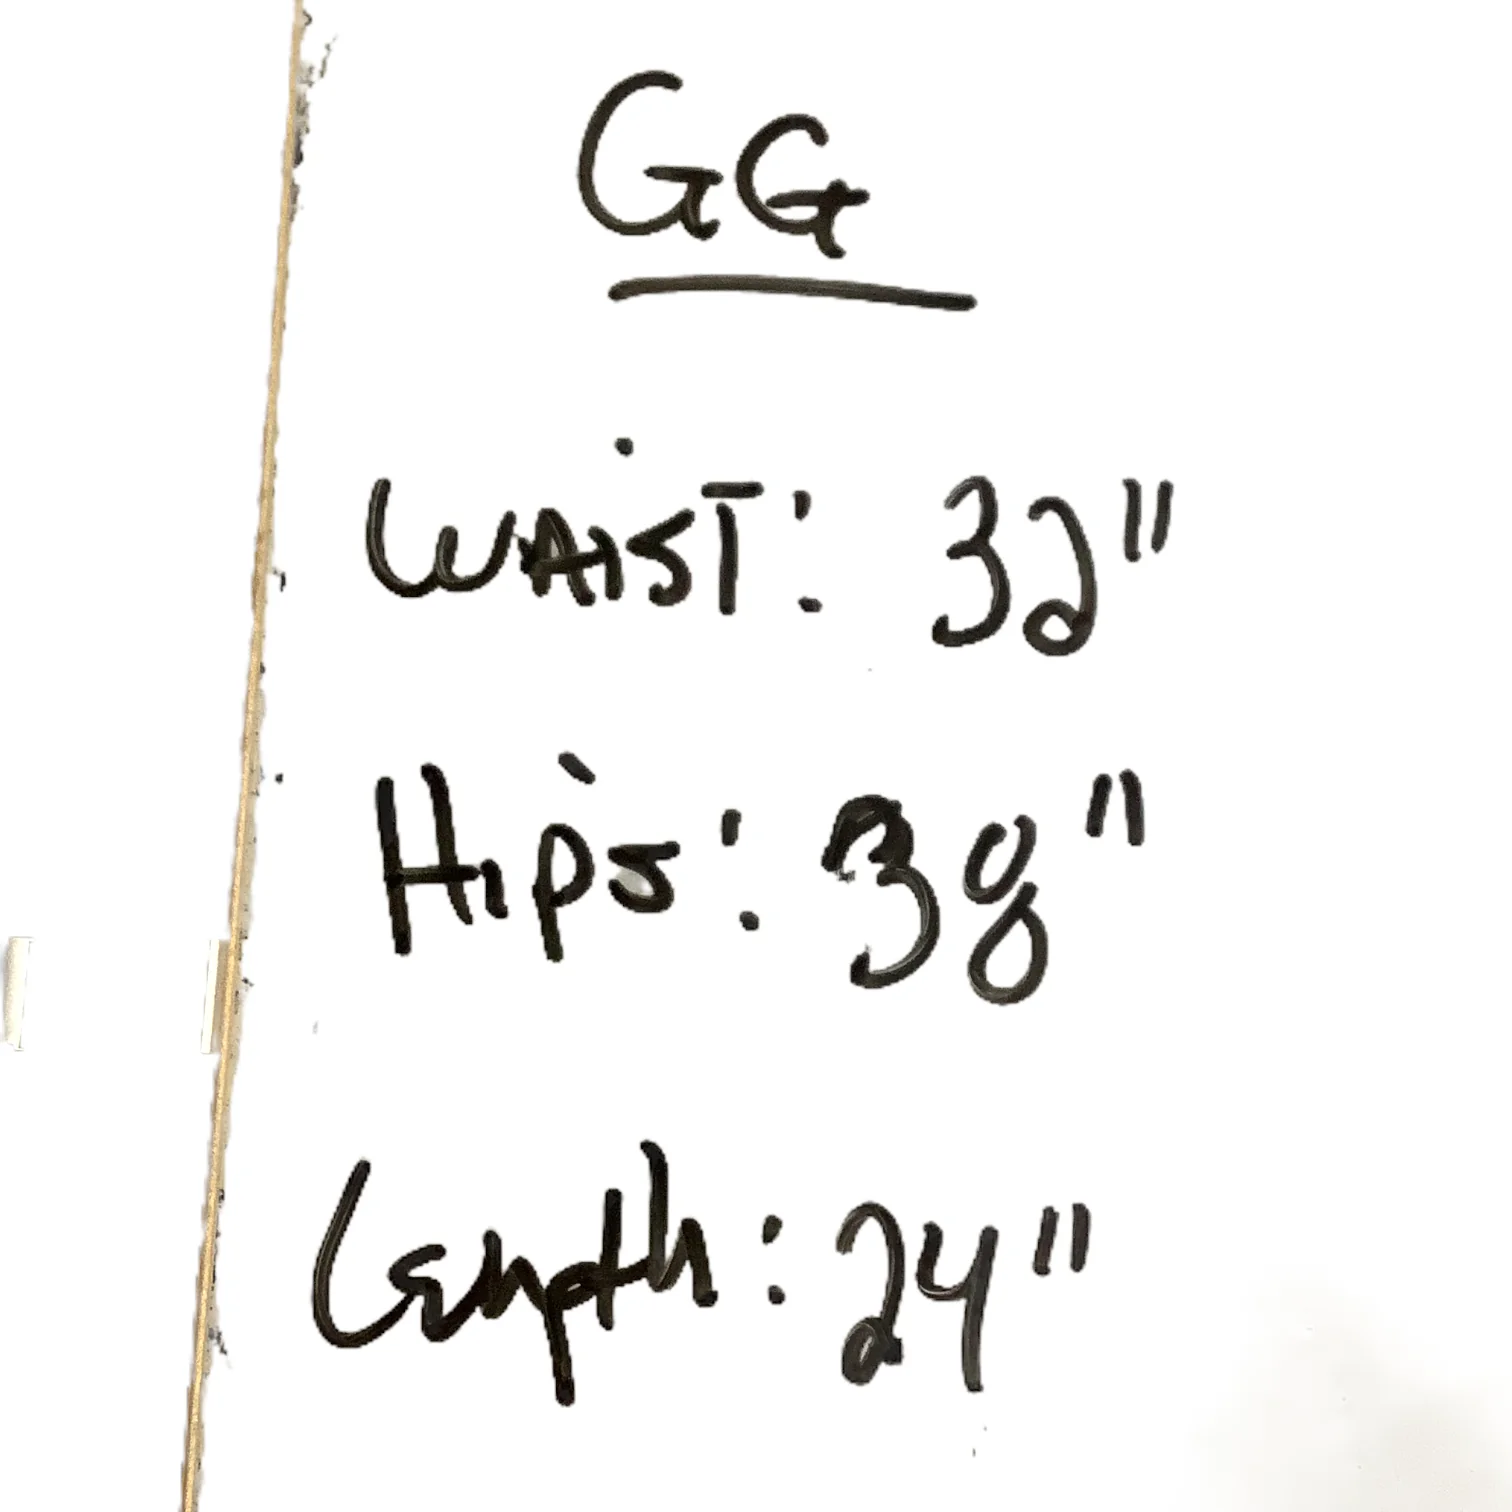 GG
WAIST: 32"
Hips: 38"
Length: 24"